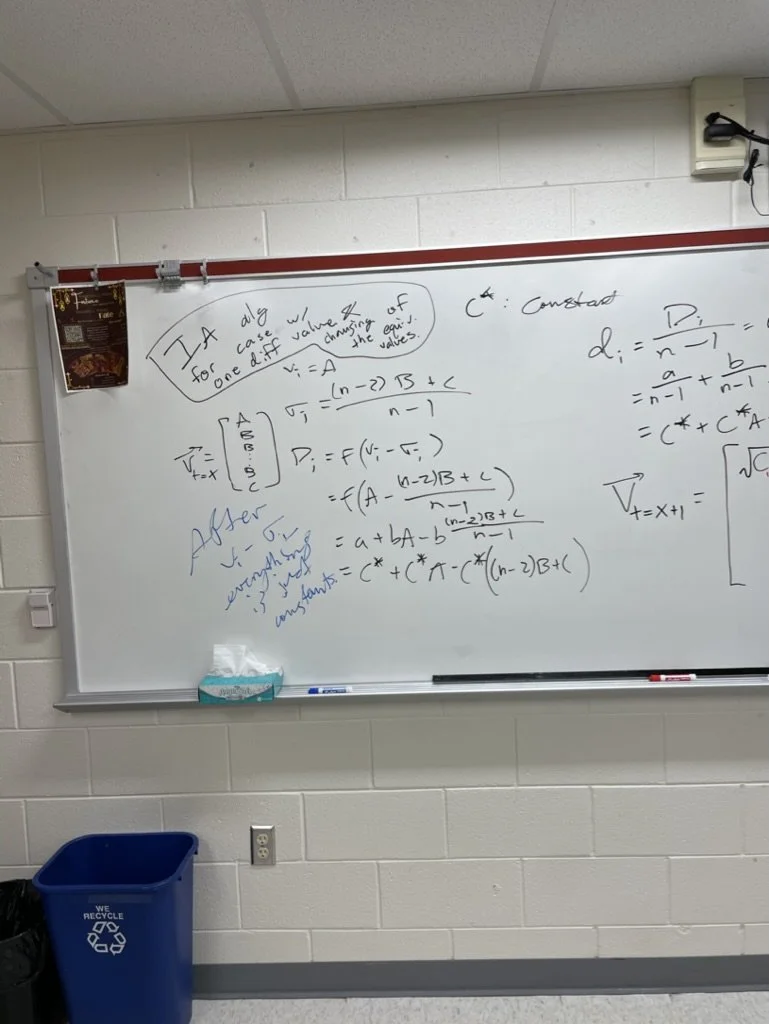 IA alg
for case w/
one diff value &
changing of
the equiv.
values.
C* : Constant
v_i = A
σ_i = ((n-2)B + C)/(n-1)
V⃗_{t=x} = [A B B ⋮ B C]
D_i = f(v_i - σ_i)
= f(A - ((n-2)B + C)/(n-1))
= a + bA - b((n-2)B + C)/(n-1)
= C* + C*A - C*((n-2)B + C)
After
v_i - σ_i
everything
is just
constants.
d_i = D_i/(n-1) =
= a/(n-1) + b/(n-1)
= C* + C*A
V⃗_{t=x+1} = [√C
WE
RECYCLE